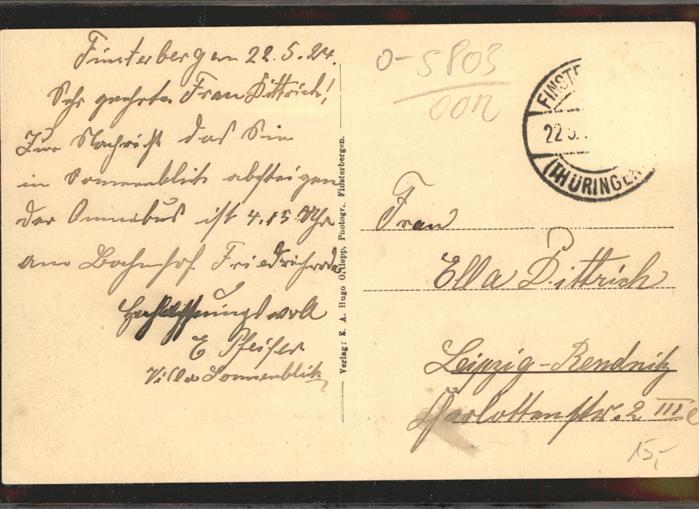 Finsterbergen 22.5.24.
Sehr geehrte Frau Dittrich!
Zur Nachricht das Sie
in Sonnenblick absteigen
der Omnibus ist 4.15 Uhr
am Bahnhof Friedrichroda
Hochachtungsvoll
E Pfeifer
Villa Sonnenblick
Verlag: E. A. Hugo Ortlepp, Photogr., Finsterbergen.
0-5803
00n
FINSTE
22 5.
(THÜRINGEN
Frau
Ella Dittrich
Leipzig-Reudnitz
Charlottenstr. 2 III
15,-